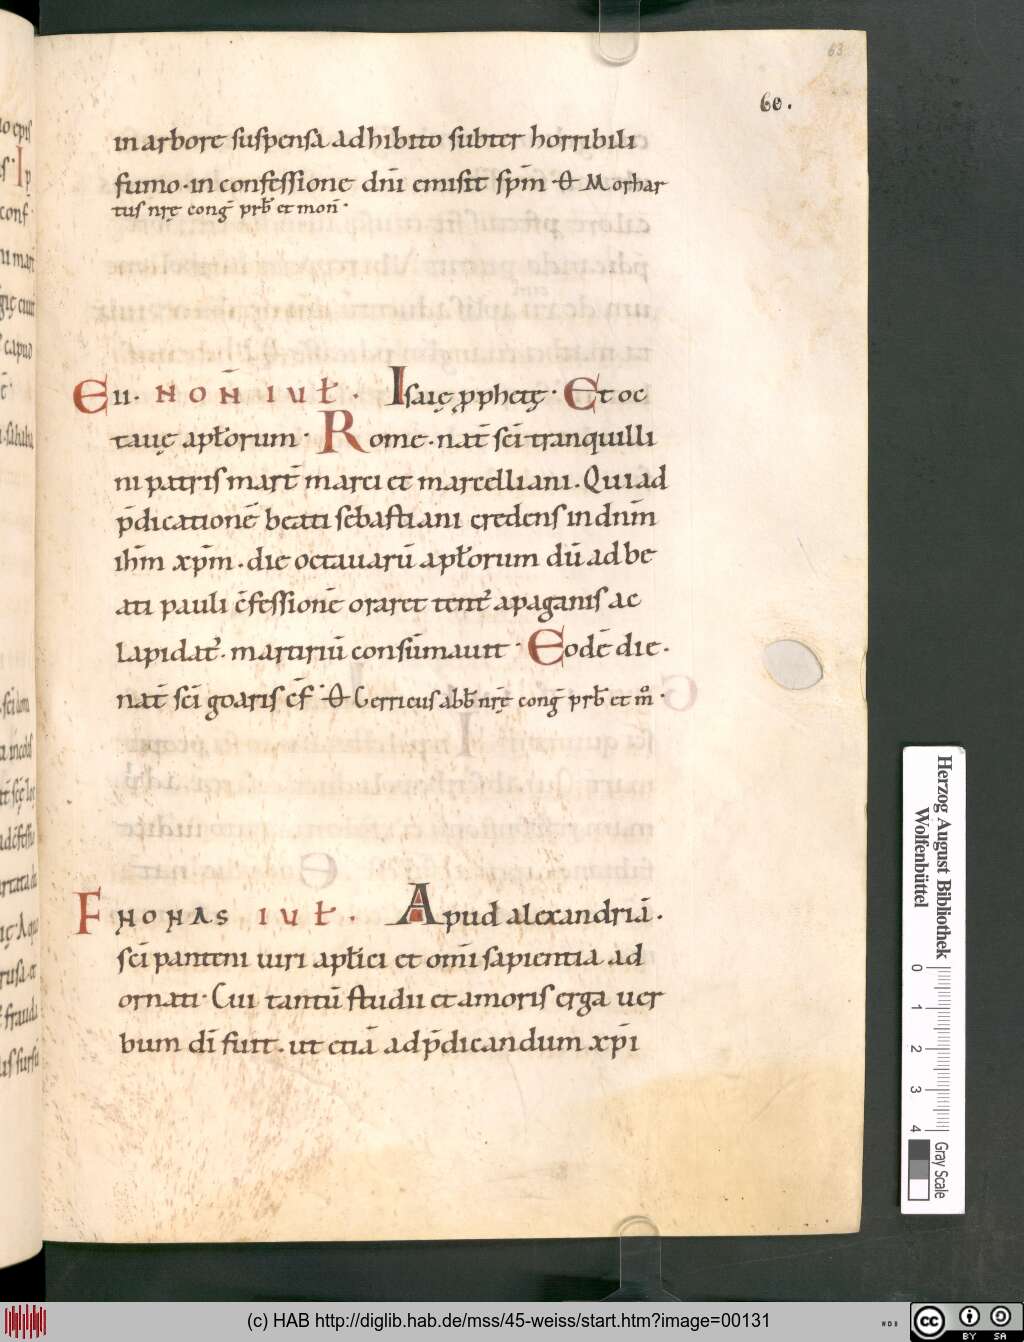 63
60.
in arbore suspensa adhibito subter horribili
fumo. in confessione dnī emisit spm̄. Ꝋ Morhar
tus nrę cong̅ prb̄ et mon̄.
E II. NON̄ IUŁ. Isaię ꝓphetę. Et oc
tauę apłorum. Rome. nat̄ sci̅ tranquilli
ni patris mart̄ marci et marcelliani. Qui ad
p̄dicationē beati sebastiani credens in dnm̄
ihm̄ xpm̄. die octauarū apłorum dū ad be
ati pauli c̄fessionē oraret tent᷒ a paganis ac
lapidat᷒. martiriū consūmauit. Eodē die.
nat̄ sci̅ goaris c̄f. Ꝋ Gerricus abb̄ nrę cong̅ prb̄ et m̊.
F NONAS IUŁ. Apud alexandriā.
sci̅ panteni uiri apłici et om̄i sapientia ad
ornati. Cui tantū studii et amoris erga uer
bum di̅ fuit. ut etiā ad p̄dicandum xpi̅
Herzog August Bibliothek
Wolfenbüttel
0 1 2 3 4
Gray Scale
(c) HAB http://diglib.hab.de/mss/45-weiss/start.htm?image=00131
cc BY SA